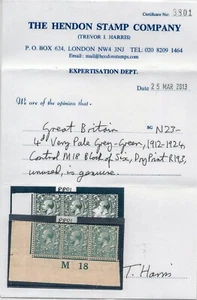 Certificate No: 5801
THE HENDON STAMP COMPANY
(TREVOR I. HARRIS)
P. O. BOX 634, LONDON NW4 3NJ TEL: 020 8209 1464
Email: mail@hendonstamps.com
EXPERTISATION DEPT.
Date 25 MAR 2013
We are of the opinion that -
Great Britain SG N23-
4d Very Pale Grey-Green, 1912-1924,
Control M18 Block of Six, Dry Print R193,
unused, is genuine.
M 18
T. Harris